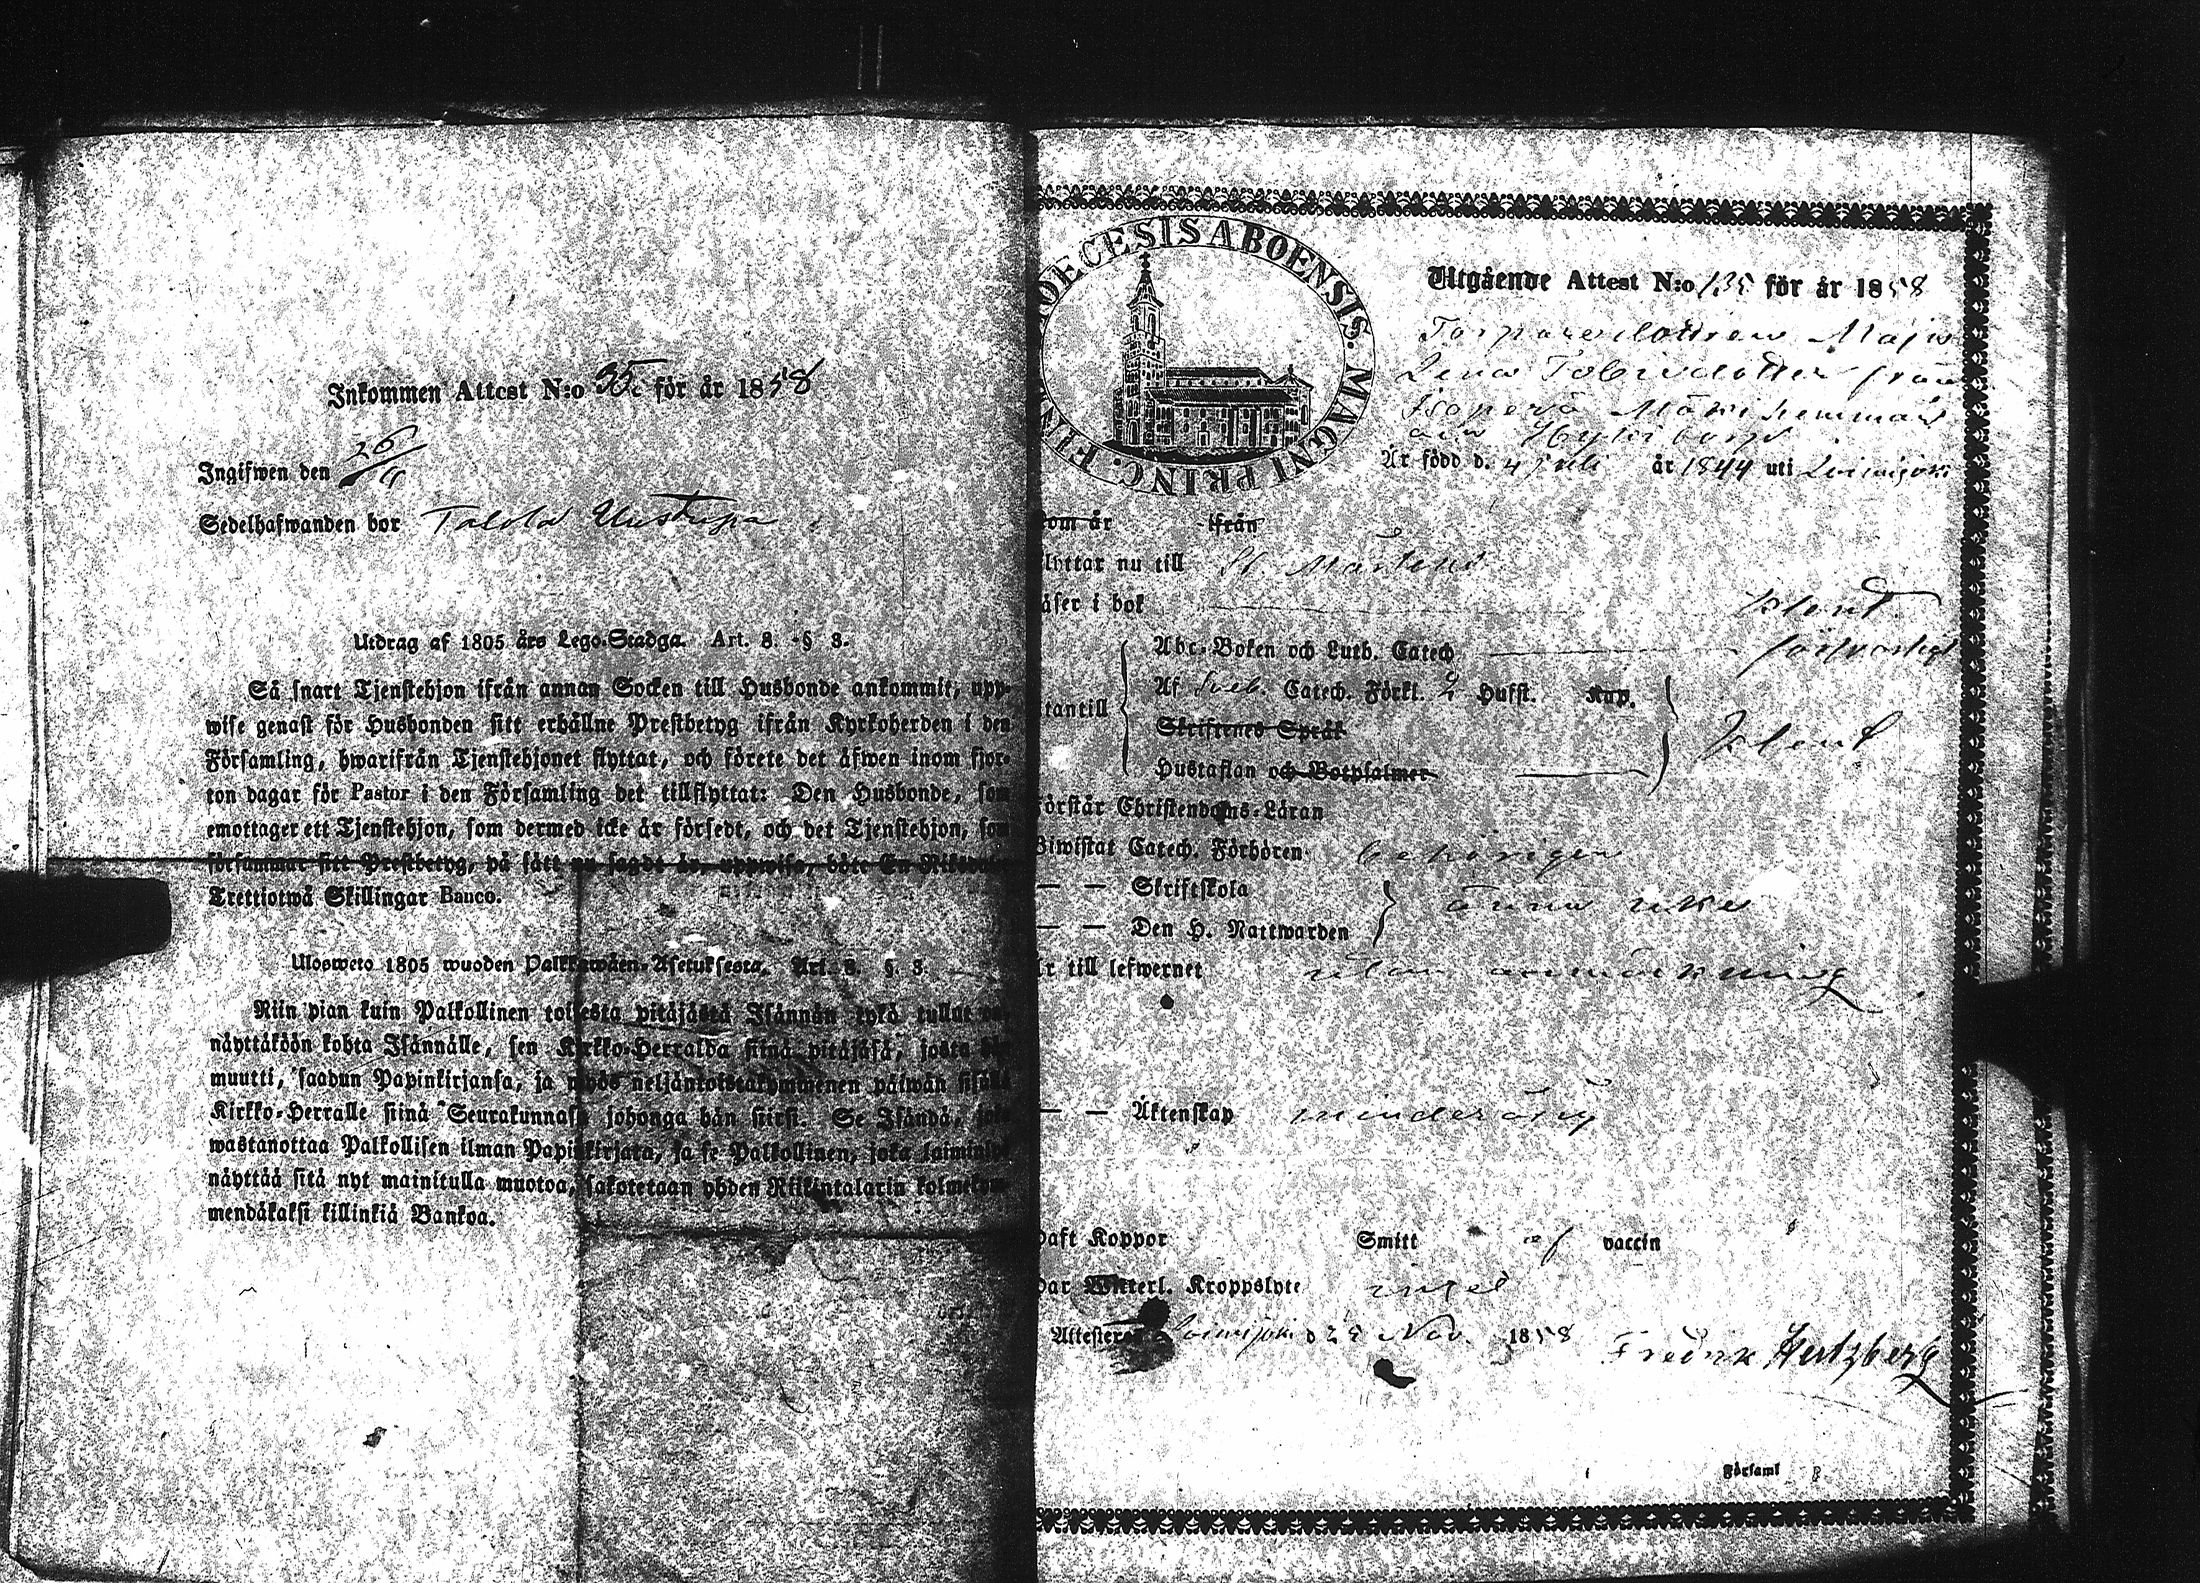 Inkommen Attest N:o 35. för år 1858
Ingifwen den 26/11
Sedelhafwanden bor Talola Uustupa
Utdrag af 1805 års Lego-Stadga. Art. 8. § 3.
Så snart Tjenstehjon ifrån annan Socken till Husbonde ankommit, upp-
wise genast för Husbonden sitt erhållne Prestbetyg ifrån Kyrkoherden i den
Församling, hwarifrån Tjenstehjonet flyttat, och förete det äfwen inom fjor-
ton dagar för Pastor i den Församling det tillflyttat: Den Husbonde, som
emottager ett Tjenstehjon, som dermed icke är försedt, och det Tjenstehjon, som
försummar sitt Prestbetyg, på sätt nu sagdt är, uppwise, böte En Riksdaler
Trettiotwå Skillingar Banco.
Ulosweto 1805 wuoden Palkkawäen-Asetuksesta. Art. 8. §. 3.
Niin pian kuin Palkollinen toisesta pitäjästä Isännän tykö tullut on
näyttäköön kohta Isännälle, sen Kirkko-Herralda siinä pitäjäsä, josta hän
muutti, saadun Papinkirjansa, ja myös neljäntoistakymmenen päiwän sisällä
Kirkko-Herralle siinä Seurakunnasa johonga hän siirsi. Se Isändä, joka
wastanottaa Palkollisen ilman Papinkirjata, ja se Palkollinen, joka laiminlyö
näyttää sitä nyt mainitulla muotoa, sakotetaan yhden Riikintalarin kolmekym-
mendäkaksi killinkiä Bankoa.
DIOECESIS ABOENSIS. MAGNI PRINC. FIN
Utgående Attest N:o 135 för år 1858
Torparedottren Maja
Lena Tobiasdotter från
Isoperä Mäki hemman
och by
Är född d. 4 Juli år 1844 uti Loimijoki
om år ifrån
lyttar nu till St. Mårtens
äser i bok klent
Abc-Boken och Luth. Catech försvarligt
tantill Af Sveb. Catech. Förkl. 2 Hufst. Kap.
Skriftenes Språk klent
Hustaflan och Botpsalmer
örstår Christendoms-Läran
Biwistat Catech. Förhören behörigen
— — Skriftskola
— — Den H. Nattwarden ännu icke
r till lefwernet utan anmärkning
— — Äktenskap minderårig
aft Koppor Smitt af vaccin
ar Witterl. Kroppslyte intet
Attesterar Loimijoki d 22 Nov. 1858
Fredrik Hertzberg
Församl